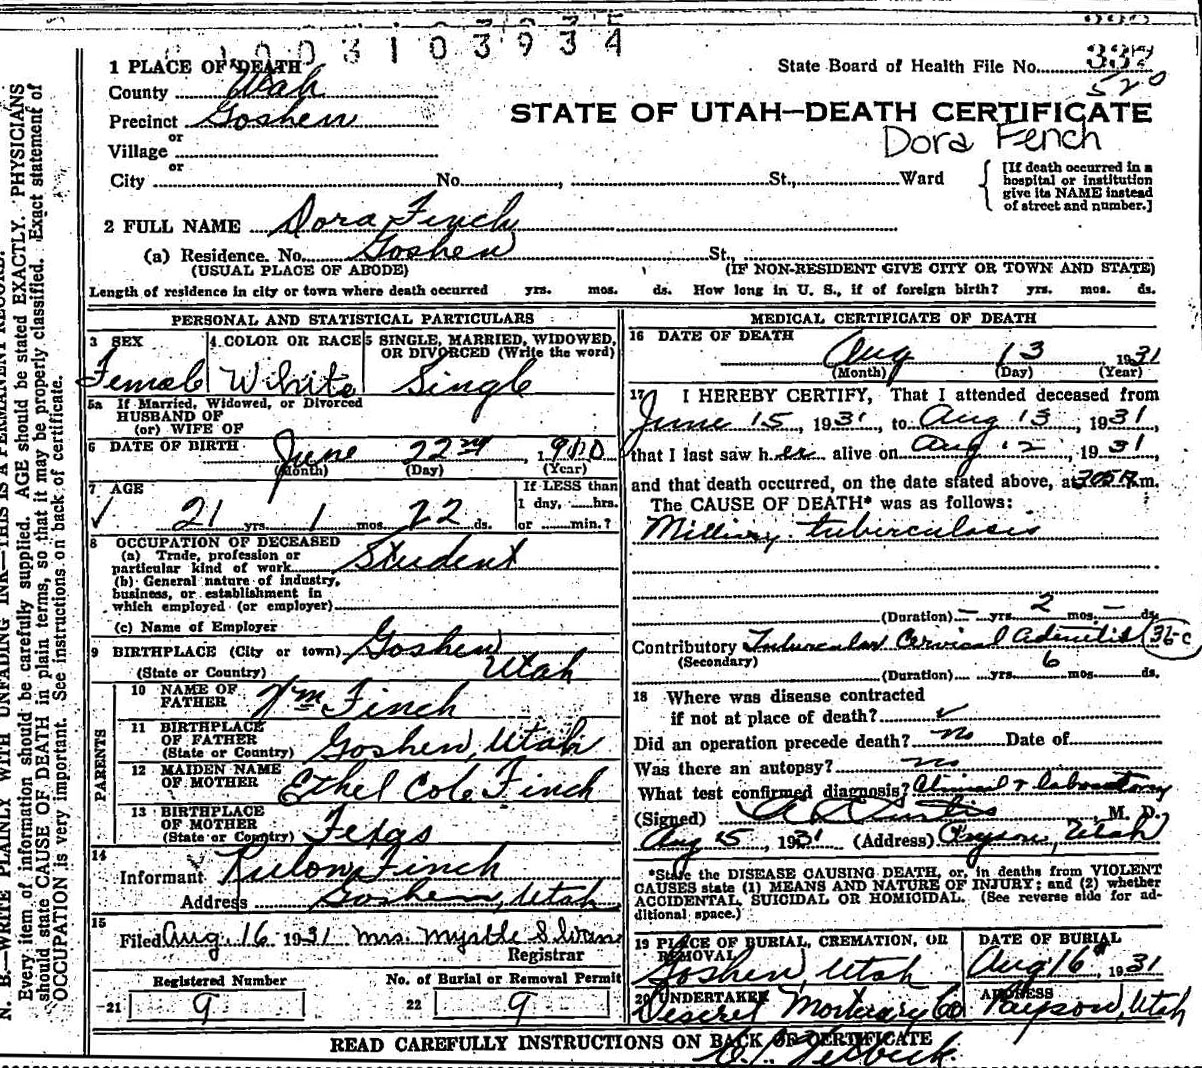 1003103934
1 PLACE OF DEATH
County Utah
State Board of Health File No. 337
520
Precinct Goshen
STATE OF UTAH—DEATH CERTIFICATE
Dora Fench
or
Village
or
City No. , St., Ward
[If death occurred in a hospital or institution give its NAME instead of street and number.]
2 FULL NAME Dora Finch
(a) Residence. No. Goshen St.,
(USUAL PLACE OF ABODE) (IF NON-RESIDENT GIVE CITY OR TOWN AND STATE)
Length of residence in city or town where death occurred yrs. mos. ds. How long in U. S., if of foreign birth? yrs. mos. ds.
PERSONAL AND STATISTICAL PARTICULARS
3 SEX 4 COLOR OR RACE 5 SINGLE, MARRIED, WIDOWED,
OR DIVORCED (Write the word)
Female White Single
5a If Married, Widowed, or Divorced
HUSBAND OF
(or) WIFE OF
6 DATE OF BIRTH June 22nd 1910
(Month) (Day) (Year)
7 AGE If LESS than
1 day, hrs.
21 yrs 1 mos. 22 ds. or min.?
8 OCCUPATION OF DECEASED
(a) Trade, profession or
particular kind of work Student
(b) General nature of industry,
business, or establishment in
which employed (or employer)
(c) Name of Employer
9 BIRTHPLACE (City or town) Goshen
(State or Country) Utah
PARENTS
10 NAME OF
FATHER Wm Finch
11 BIRTHPLACE
OF FATHER
(State or Country) Goshen, Utah
12 MAIDEN NAME
OF MOTHER Ethel Cole Finch
13 BIRTHPLACE
OF MOTHER
(State or Country) Texas
14
Informant Finch
Address Goshen, Utah
15
Filed Aug. 16 1931 Mrs. Myrtle S.
Registrar
Registered Number No. of Burial or Removal Permit
21 9 22 9
MEDICAL CERTIFICATE OF DEATH
16 DATE OF DEATH
Aug 13 1931
(Month) (Day) (Year)
17 I HEREBY CERTIFY, That I attended deceased from
June 15, 1931, to Aug 13, 1931,
that I last saw her alive on Aug 12, 1931
and that death occurred, on the date stated above, at m.
The CAUSE OF DEATH* was as follows:
Milliary tuberculosis
(Duration) — yrs. 2 mos. — ds.
Contributory Tubercular Cervical Adenitis 36-c
(Secondary)
(Duration) yrs 6 mos. ds.
18 Where was disease contracted
if not at place of death?
Did an operation precede death? no Date of
Was there an autopsy? no
What test confirmed diagnosis? Clinical & laboratory
(Signed) Curtis, M. D.
Aug 15, 1931 (Address) Payson, Utah
*State the DISEASE CAUSING DEATH, or, in deaths from VIOLENT
CAUSES state (1) MEANS AND NATURE OF INJURY; and (2) whether
ACCIDENTAL, SUICIDAL OR HOMICIDAL. (See reverse side for ad-
ditional space.)
19 PLACE OF BURIAL, CREMATION, OR
REMOVAL
Goshen, Utah
DATE OF BURIAL
Aug 16, 1931
20 UNDERTAKER
Deseret Mortuary Co
ADDRESS
Payson, Utah
READ CAREFULLY INSTRUCTIONS ON BACK OF CERTIFICATE
N. B.—WRITE PLAINLY WITH UNFADING INK—THIS IS A PERMANENT RECORD.
Every item of information should be carefully supplied. AGE should be stated EXACTLY. PHYSICIANS
should state CAUSE OF DEATH in plain terms, so that it may be properly classified. Exact statement of
OCCUPATION is very important. See instructions on back of certificate.